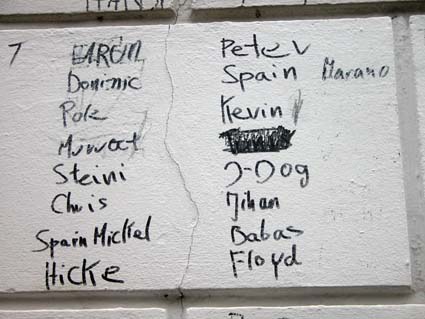 7
Dominic
Pole
Steini
Chris
Spain Mickel
Hicke
Peter
Spain Marano
Kevin
J-Dog
Jihan
Babas
Floyd